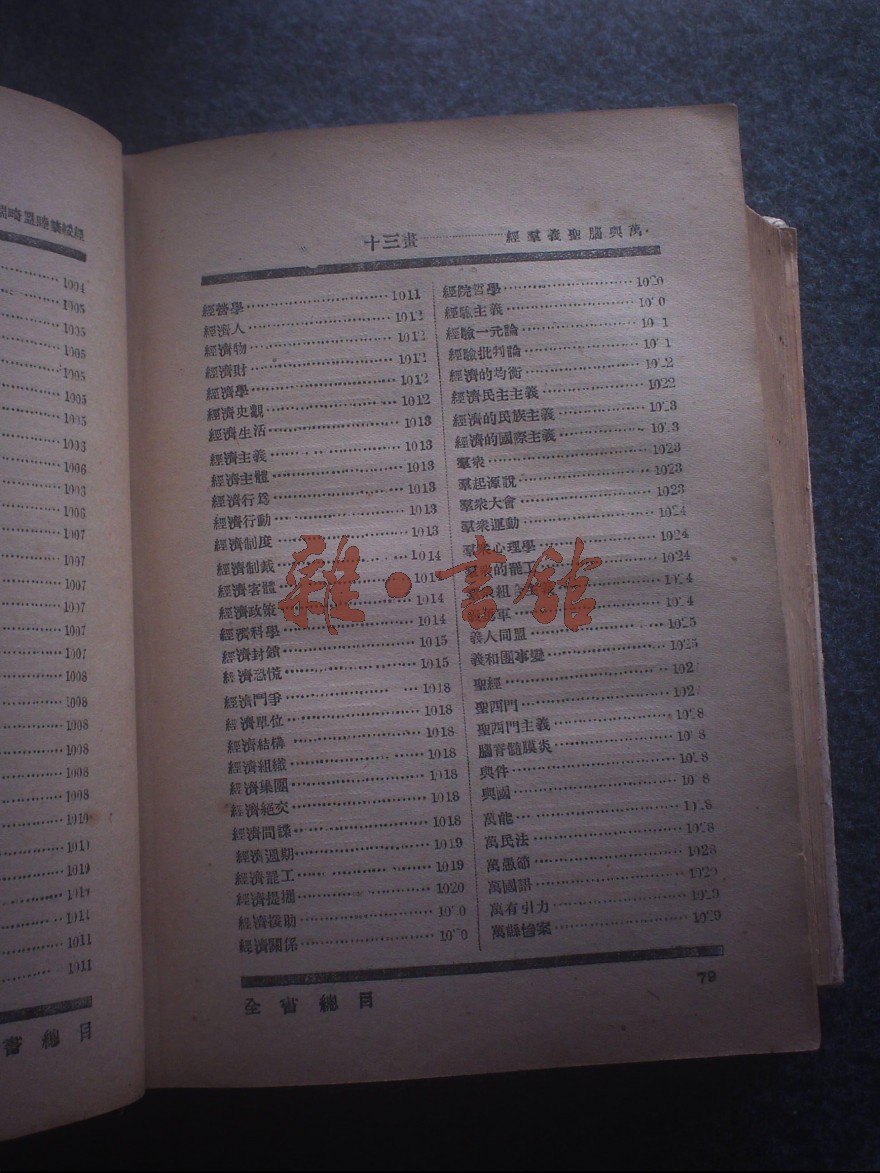 十三畫 經羣義聖腦與萬
經營學 1011
經濟人 1012
經濟物 1012
經濟財 1012
經濟學 1012
經濟史觀 1012
經濟生活 1013
經濟主義 1013
經濟主體 1013
經濟行爲 1013
經濟行動 1013
經濟制度 1013
經濟制裁 1014
經濟客體
經濟政策 1014
經濟科學 1014
經濟封鎖 1015
經濟恐慌 1015
經濟鬥爭 1018
經濟單位 1018
經濟結構 1018
經濟組織 1018
經濟集團 1018
經濟絕交 1018
經濟間諜 1018
經濟週期 1019
經濟罷工 1019
經濟提攜 1020
經濟援助
經濟關係
經院哲學 1020
經驗主義
經驗一元論
經驗批判論
經濟的均衡 1022
經濟民主主義 1022
經濟的民族主義 1023
經濟的國際主義
羣衆 1023
羣起源說 1023
羣衆大會 1023
羣衆運動 1024
羣衆心理學 1024
羣衆的罷工 1024
義人同盟 1025
義和團事變 1025
聖經
聖西門
聖西門主義
腦脊髓膜炎
與件
與國
萬能
萬民法
萬愚節 1028
萬國語
萬有引力
萬縣慘案
全書總目
79
1004
1005
1005
1005
1005
1005
1005
1006
1007
1007
1007
1007
1007
1008
1008
1008
1008
1008
1008
1011
1011
書總目
雜·書館